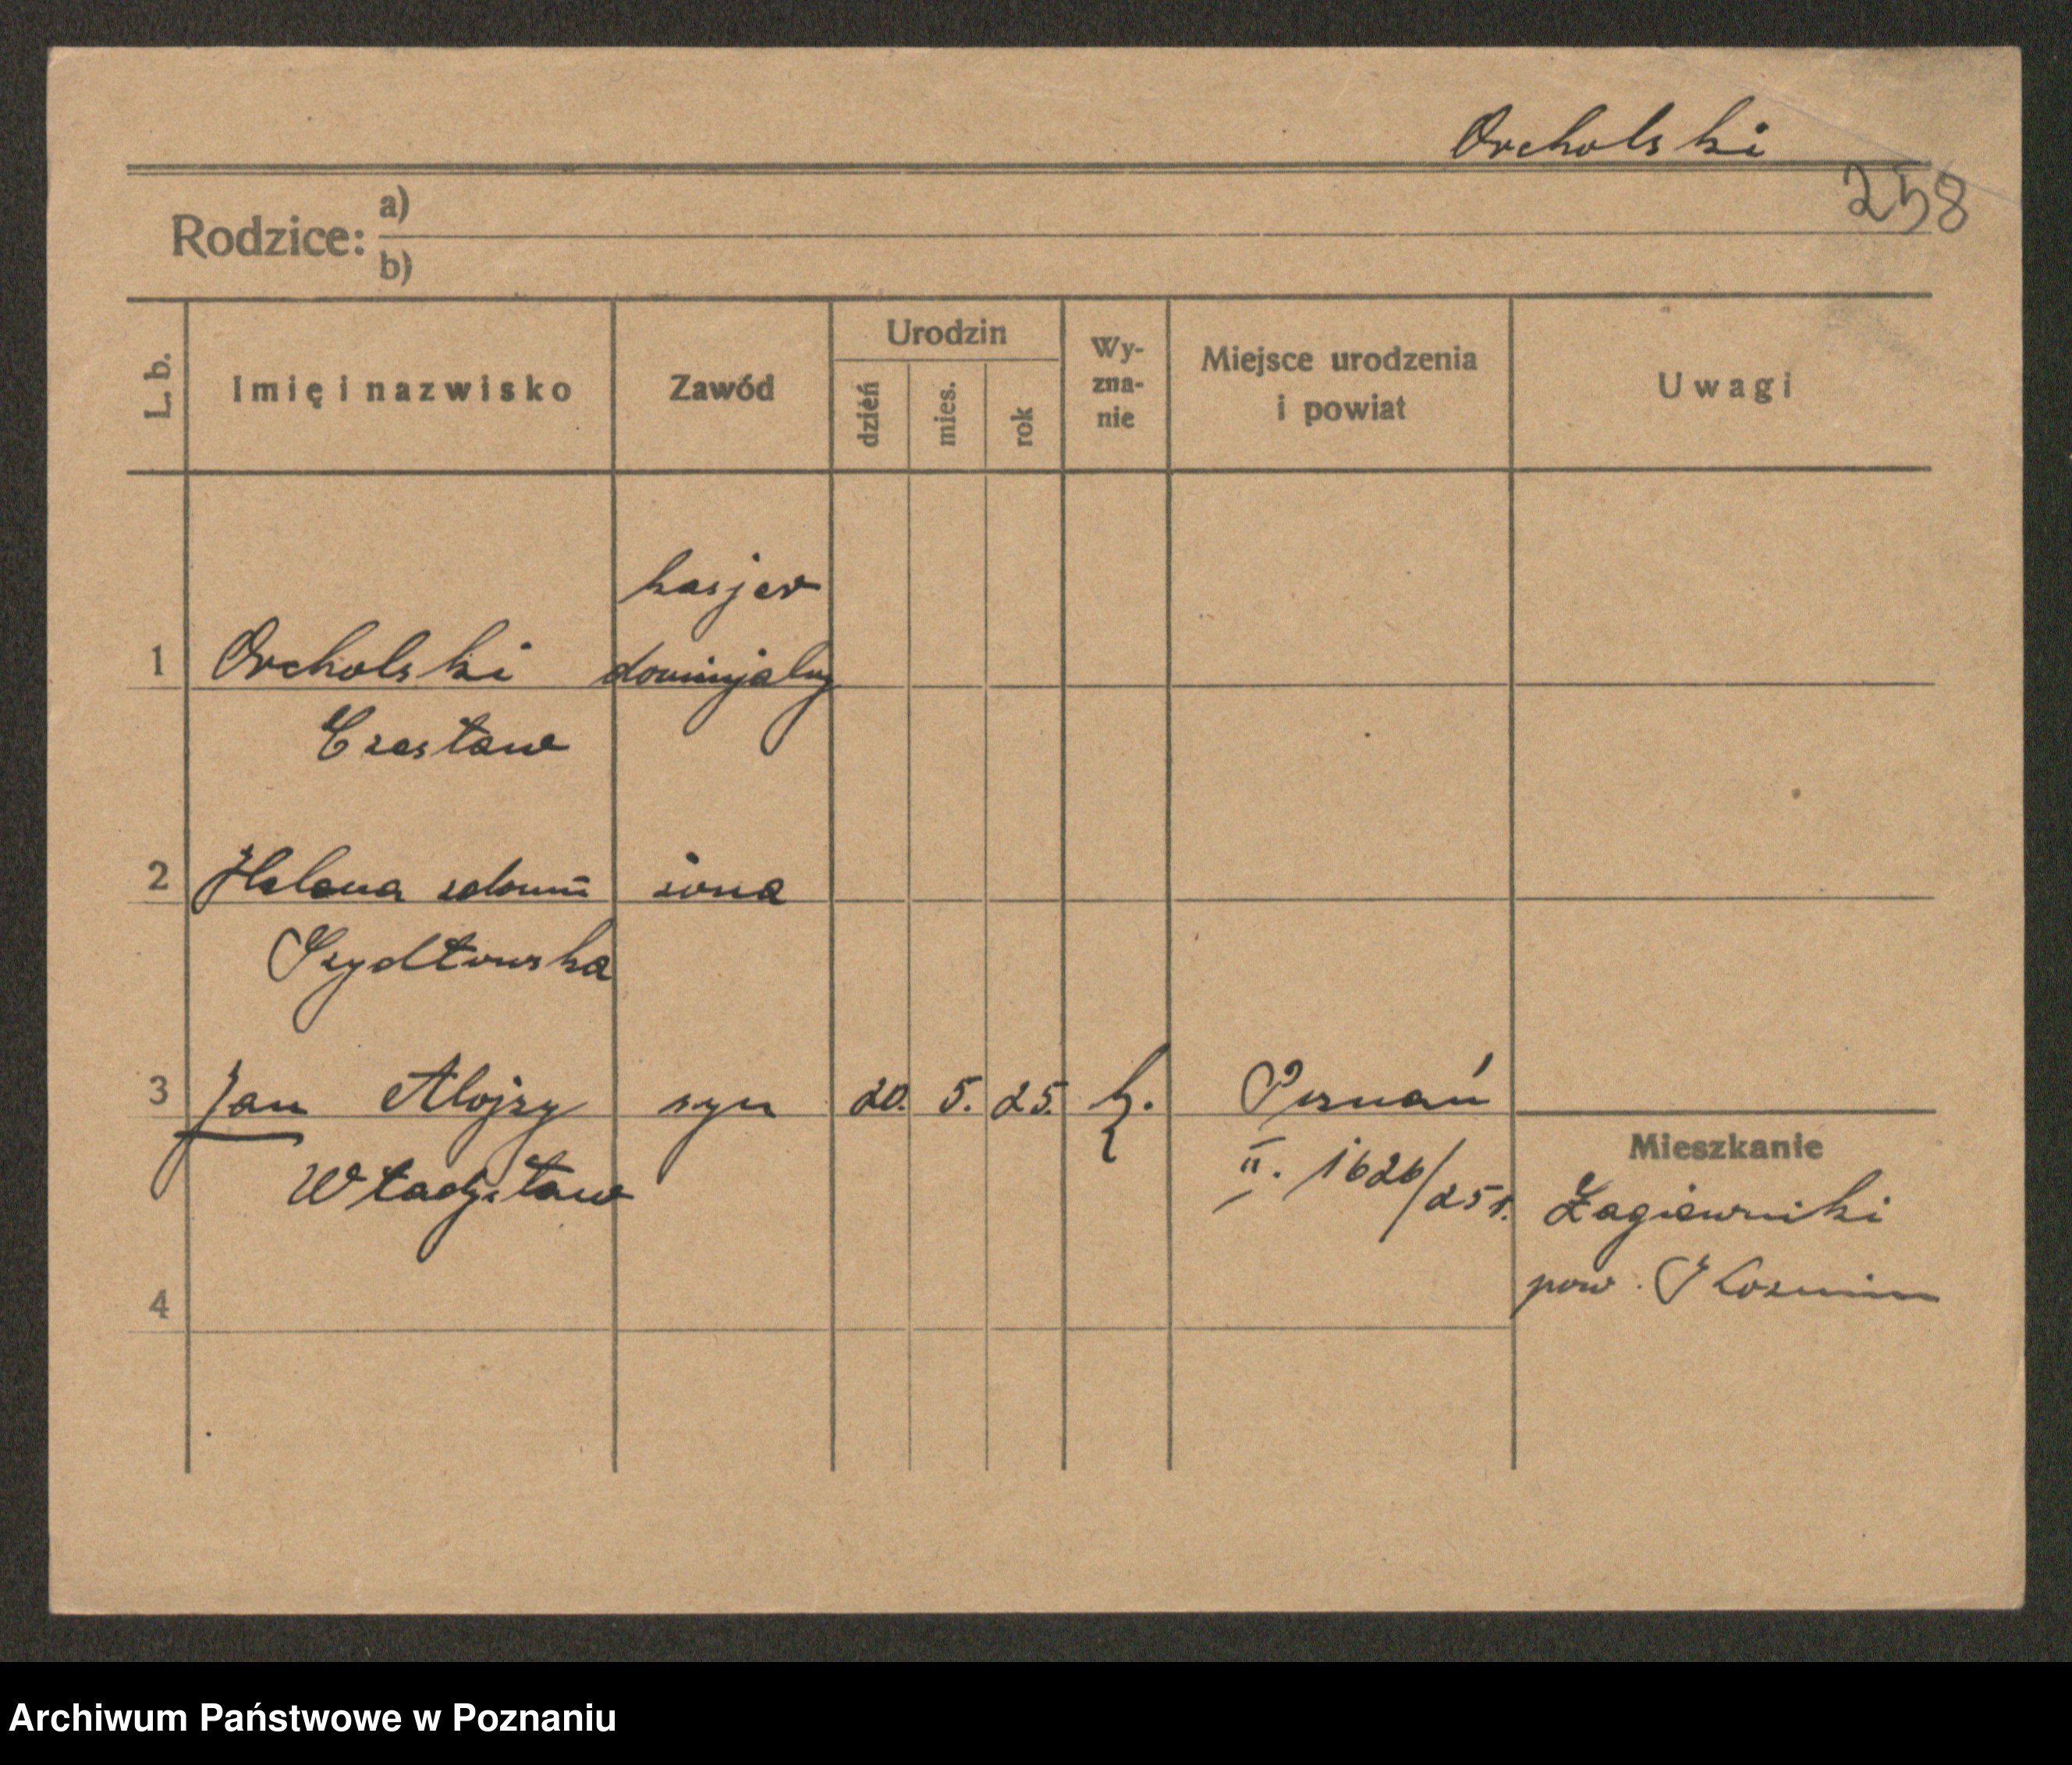 Orcholski
258
Rodzice: a)
b)
L. b. Imię i nazwisko Zawód Urodzin dzień mies. rok Wy-zna-nie Miejsce urodzenia i powiat Uwagi
kasjer
1 Orcholski dominjalny
Czesław
2 Helena żona
Szydłowska
3 Jan Alojzy syn 20. 5. 25. k. Poznań
Mieszkanie
Władysław II. 1626/25 r. Żagiewniki
pow. Kozmin
4
Archiwum Państwowe w Poznaniu